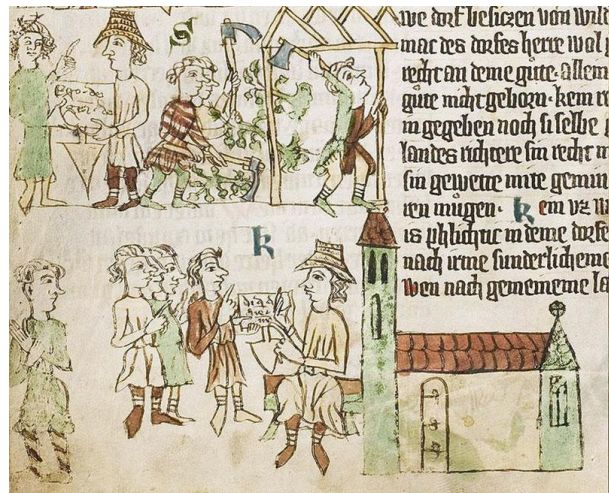 S
we dorf besiczen von wild
mac des dorfes herre wol
recht an deme gute. allem
gute nicht geborn. kein r
in gegeben noch si selbe
landes richtere sin recht m
sin gewette mite gemin
ren mugen. kein vz w
is phlichtic in deme dorfe
nach irme sunderlicheme
wen nach gemeineme la
k
ego de